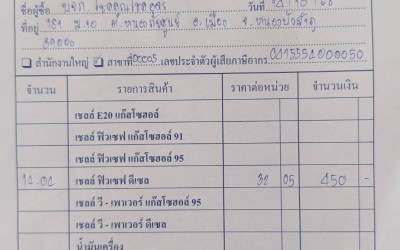 ชื่อผู้ซื้อ บจก. โชคคูณโชคถาวร วันที่
ที่อยู่ 181 ม.10 ต.หนองภัยศูนย์ อ.เมือง จ.หนองบัวลำภู
39000
สำนักงานใหญ่ สาขาที่ 00005 เลขประจำตัวผู้เสียภาษีอากร
จำนวน รายการสินค้า ราคาต่อหน่วย จำนวนเงิน
เชลล์ E20 แก๊สโซฮอล์
เชลล์ ฟิวเซฟ แก๊สโซฮอล์ 91
เชลล์ ฟิวเซฟ แก๊สโซฮอล์ 95
เชลล์ ฟิวเซฟ ดีเซล 32 05 450 -
เชลล์ วี - เพาเวอร์ แก๊สโซฮอล์ 95
เชลล์ วี - เพาเวอร์ ดีเซล
น้ำมันเครื่อง